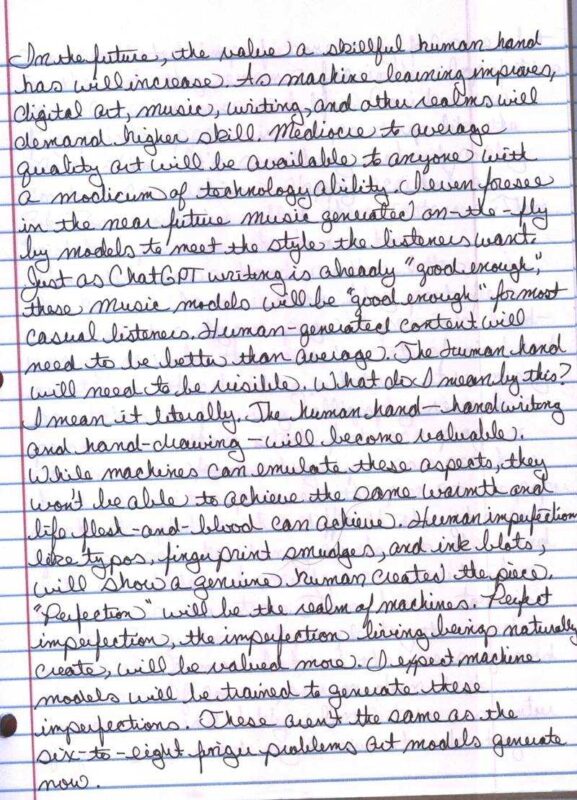 In the future, the value a skillful human hand
has will increase. As machine learning improves,
digital art, music, writing, and other realms will
demand higher skill. Mediocre to average
quality art will be available to anyone with
a modicum of technology ability. I even foresee
in the near future music generated on-the-fly
by models to meet the style the listeners want.
Just as ChatGPT writing is already "good enough",
these music models will be "good enough" for most
casual listeners. Human-generated content will
need to be better than average. The human hand
will need to be visible. What do I mean by this?
I mean it literally. The human hand—handwriting
and hand-drawing—will become valuable.
While machines can emulate these aspects, they
won't be able to achieve the same warmth and
life flesh-and-blood can achieve. Human imperfection
like typos, finger print smudges, and ink blots,
will show a genuine human created the piece.
"Perfection" will be the realm of machines. Perfect
imperfection, the imperfection living beings naturally
create, will be valued more. I expect machine
models will be trained to generate these
imperfections. These aren't the same as the
six-to-eight finger problems art models generate
now.